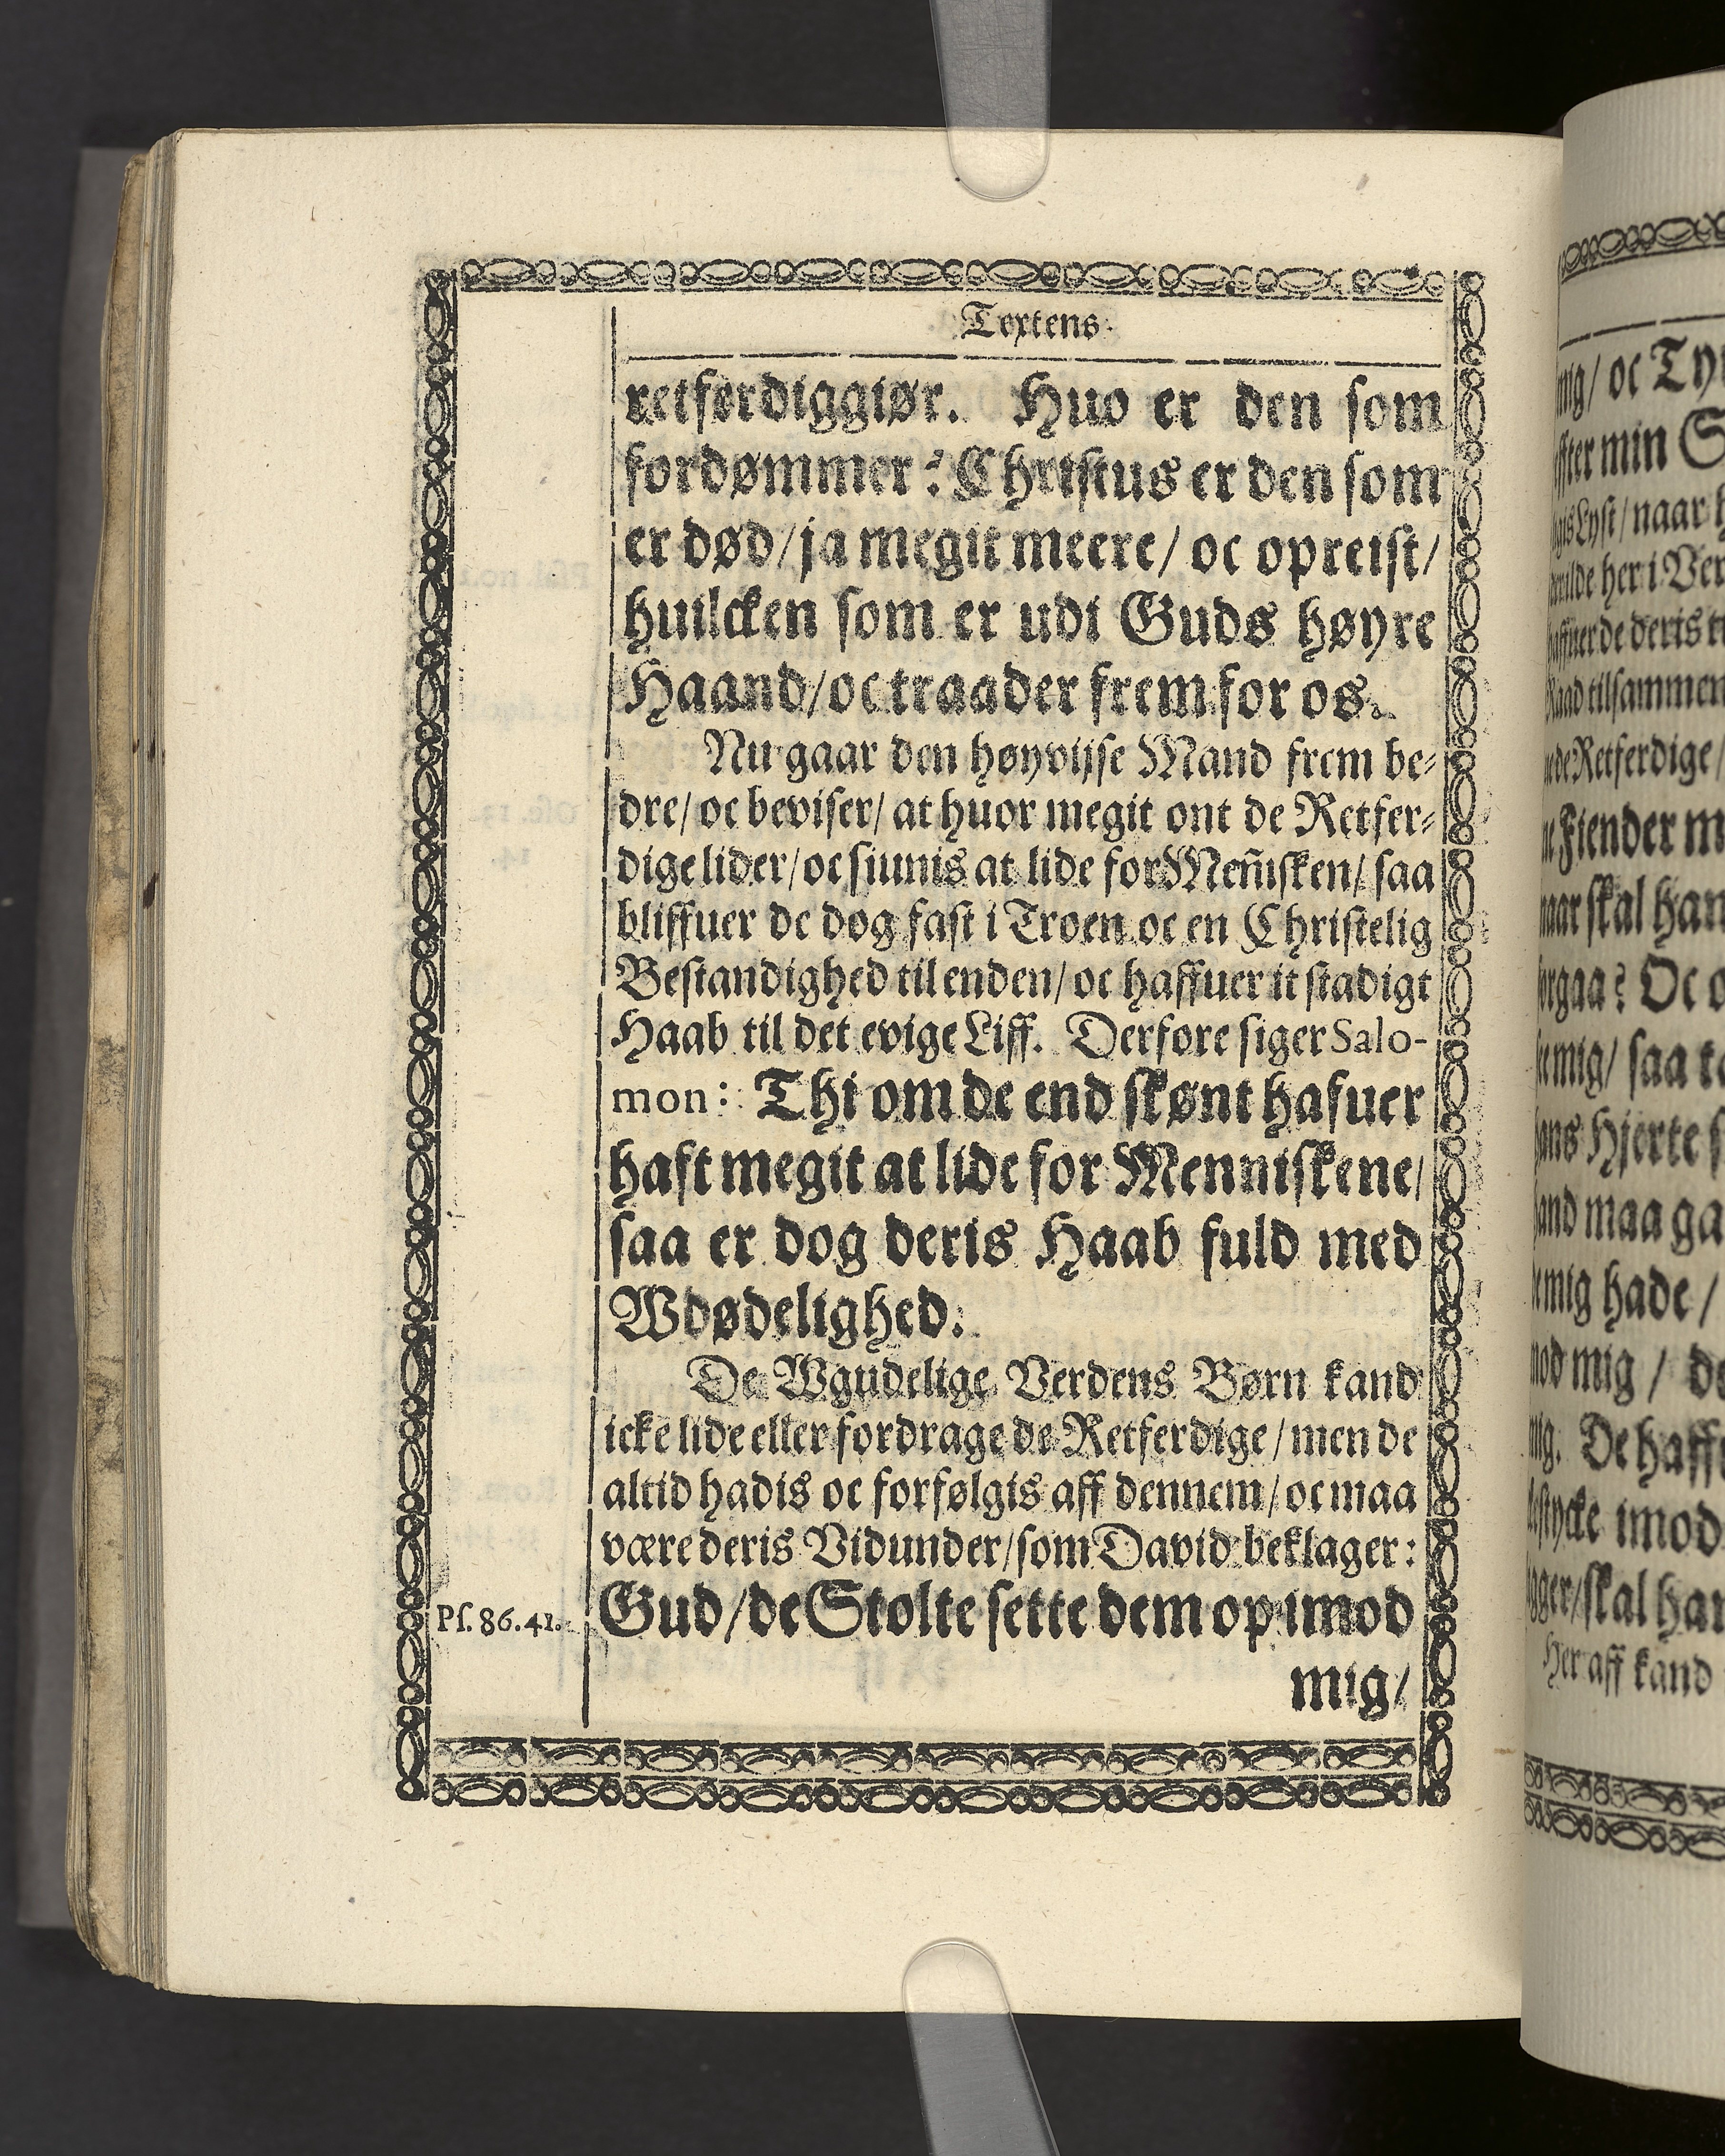 Textens
retferdiggiør. Huo er den som
fordømmer? Christus er den som
er død/ja megit meere/ oc opreist/
huilcken som er udi Guds høyre
Haand/oc traader frem for os.
Nu gaar den høyvijse Mand frem be-
dre/ oc beviser/ at huor megit ont de Retfer-
dige lider/oc siunis at lide for Meñisken/ saa
bliffuer de dog fast i Troen oc en Christelig
Bestandighed til enden/ oc haffuer it stadigt
Haab til det evige Liff. Derfore siger Salo-
mon: Thi om de end skønt hafuer
haft megit at lide for Menniskene/
saa er dog deris Haab fuld med
Wdødelighed.
De Wgudelige Verdens Børn kand
icke lide eller fordrage de Retferdige/men de
altid hadis oc forfølgis aff dennem/oc maa
være deris Vidunder/som David beklager:
Ps. 86.41. Gud/de Stolte sette dem op imod
mig/
mig/ oc
min
Lyst/ naar
her i Ver
de deris
tilsammen
Retferdige/
Fiender
skal han
Oc
mig/ saa
Hjerte
maa
mig hade/
mig / de
De
imod
skal
Her aff kand